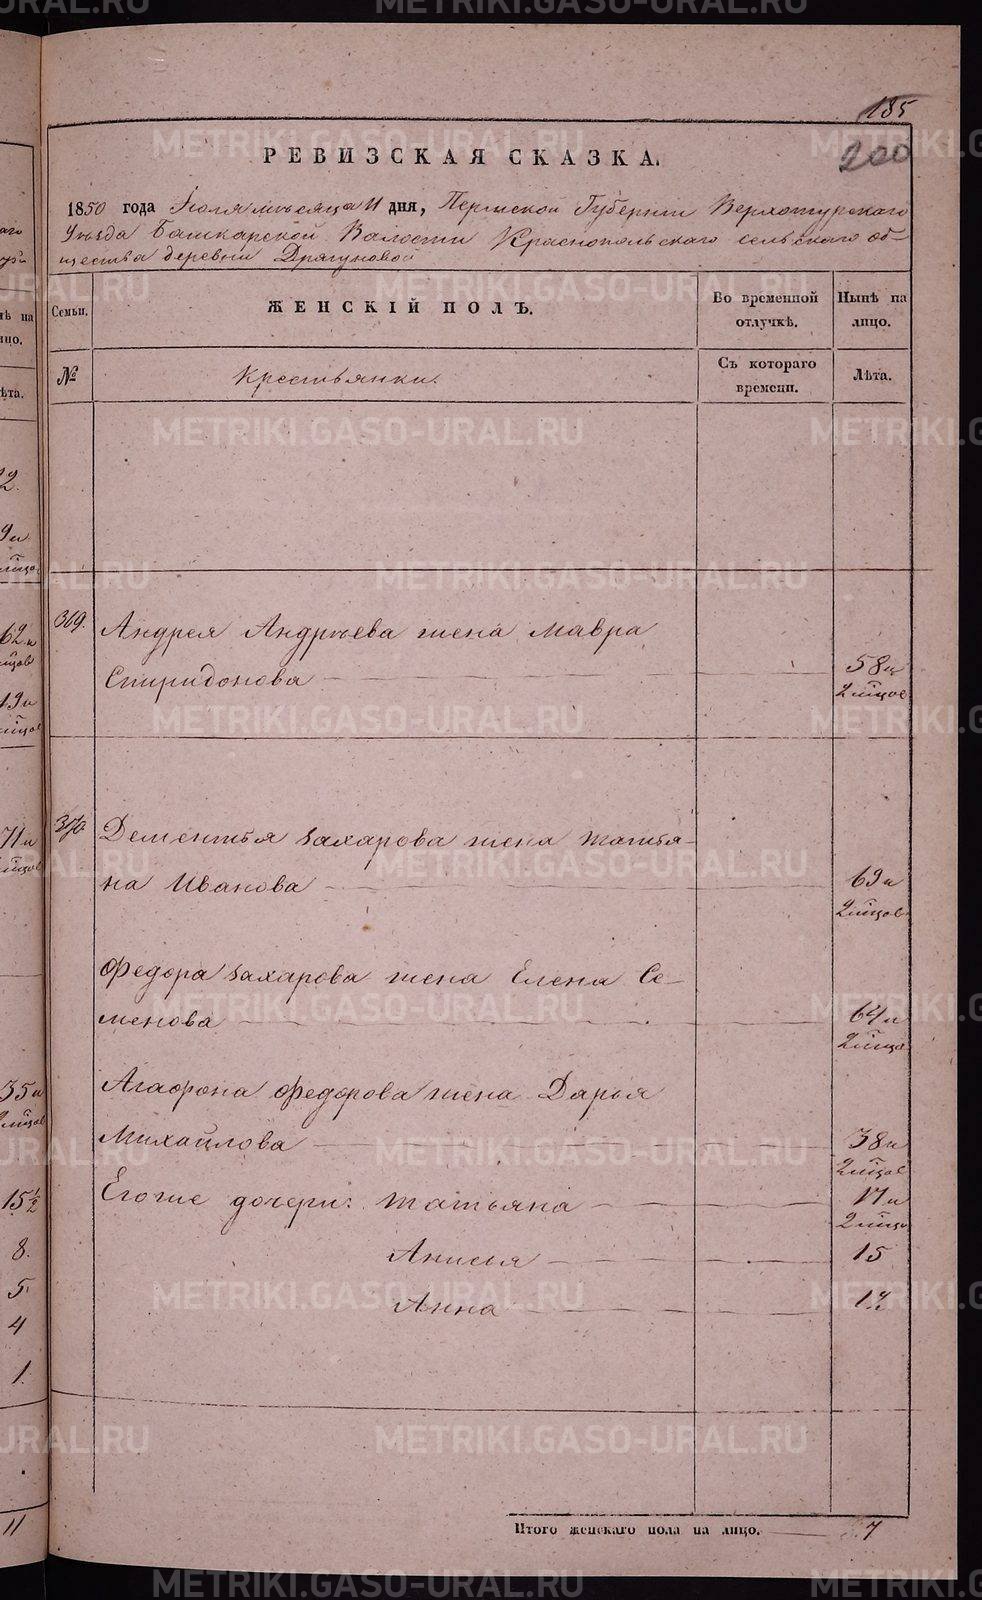 185
200
РЕВИЗСКАЯ СКАЗКА.
1850 года Июля месяца 11 дня, Пермской Губернии Верхотурского
Уѣзда Башкарской Валости Краснопольского сельского об-
щества деревни Дрягуновой
Семьи.
ЖЕНСКІЙ ПОЛЪ.
Во временной отлучкѣ.
Нынѣ на лицо.
№
Крестьянки.
Съ котораго времени.
Лѣта.
369.
Андрея Андреева жена Мавра
Спиридонова
58 и
2 мѣсцов
370.
Дементья Захарова жена Татья-
на Иванова
69 и
2 мѣсцов
Федора Захарова жена Елена Се-
менова
64 и
2 мѣсцо
Агафона Федорова жена Дарья
Михайлова
38 и
2 мѣсцов
Егоже дочери: Татьяна
17 и
2 мѣсцо
Анисья
15
Анна
Итого женскаго пола на лицо.
7
METRIKI.GASO-URAL.RU